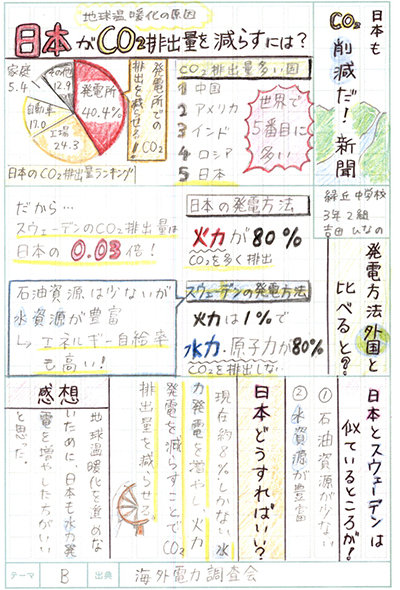 日本も
CO₂
削減だ!
新聞
緑丘中学校
3年2組
吉田ひなの
地球温暖化の原因
日本がCO₂排出量を減らすには?
家庭
5.4
その他
12.9
発電所
40.4%
自動車
17.0
工場
24.3
日本のCO₂排出量ランキング
発電所での
CO₂
排出を減らせる!
CO₂排出量多い国
1 中国
2 アメリカ
3 インド
4 ロシア
5 日本
世界で
5番目に
多い
発電方法外国と
比べると?
日本の発電方法
火力が80%
CO₂を多く排出
だから…
スウェーデンのCO₂排出量は
日本の0.03倍!
スウェーデンの発電方法
火力は1%で
水力、原子力が80%
CO₂を排出しない
石油資源は少ないが
水資源が豊富
↳エネルギー自給率
も高い!
日本とスウェーデンは
似ているところが!
①石油資源が少ない
②水資源が豊富
日本どうすればいい?
現在約8%しかない水
力発電を増やし、火力
発電を減らすことでCO₂
排出量を減らせる。
感想
地球温暖化を進めな
いために、日本も水力発
電を増やしたらがいい
と思った。
テーマ
B
出典
海外電力調査会